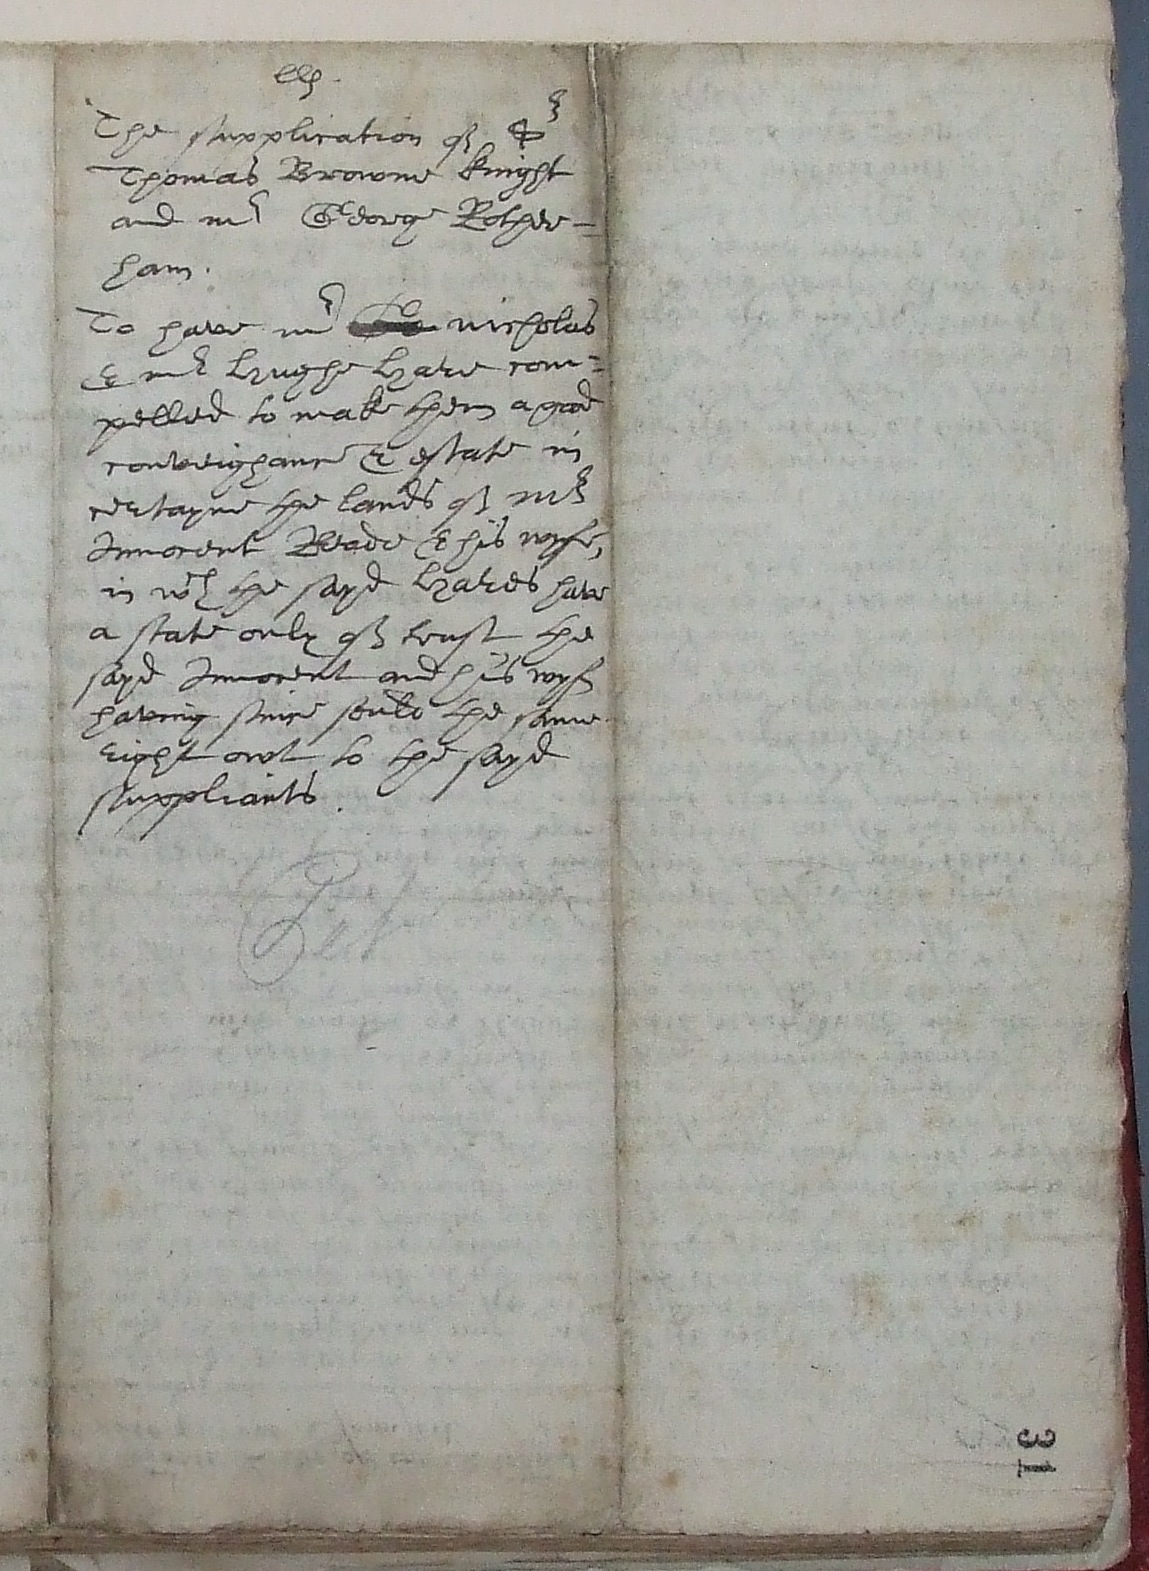 The supplication of Sr
Thomas Browne knight
and mr George Rother=
ham.
To have mr nicholas
& mr Hughe Hare com=
pelled to make them a good
conveighance & estate in
certayne the lands of mr
Innocent Reade & his wyfe,
in wch the sayd Hares have
a state only of trust the
sayd Innocent and his wyfe
having since sould the same
right owt to the sayd
suppliants.
31